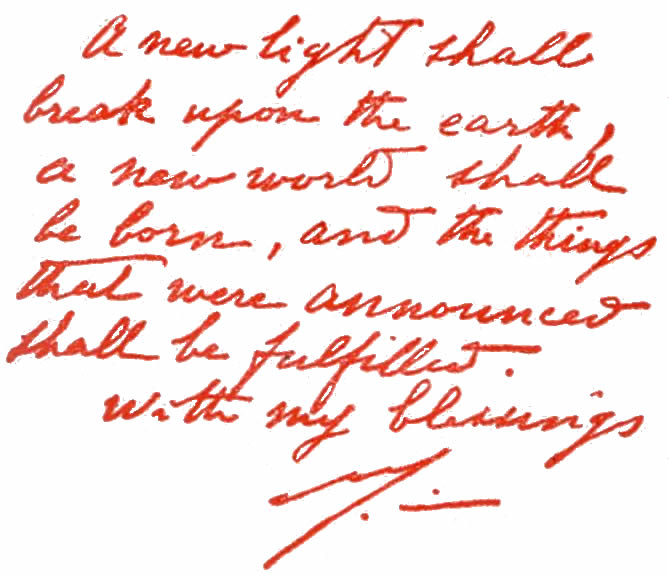 A new light shall
break upon the earth,
a new world shall
be born, and the things
that were announced
shall be fulfilled.
With my blessings